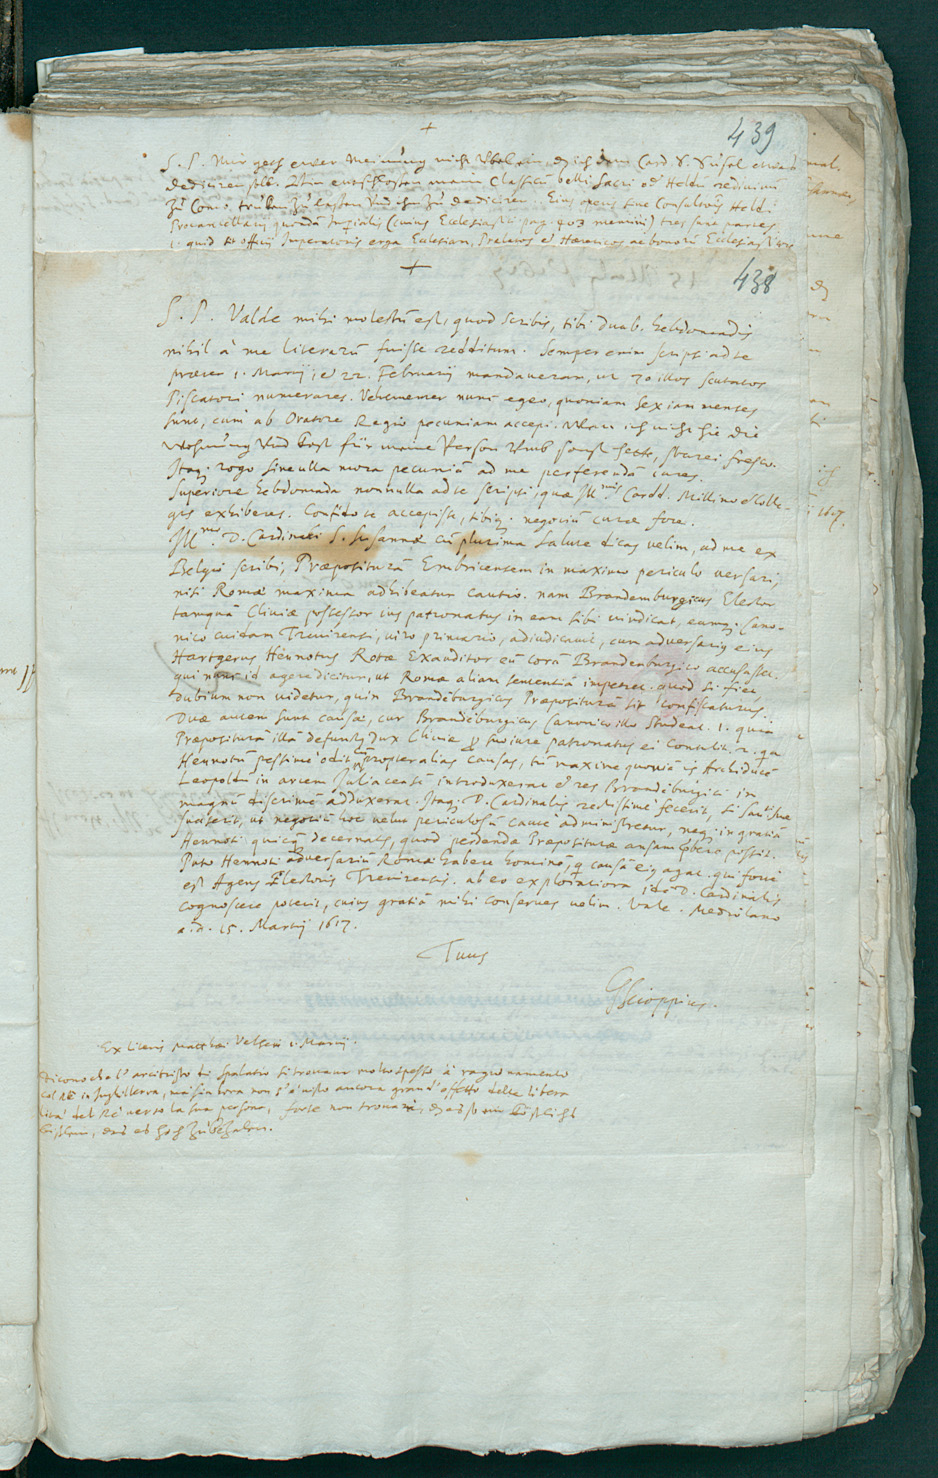 439
+
S. P. Mir geht ewer Meinung nicht Vbel ein, dz ich dem Card. S. Susal etwas
dediciren soll. Bin entschlossen meum Classicum belli sacri od Heldū redivivū
zu Como trucken zu lassen Vnd ihm zu dediciren. Eius operis sive Consultōis Heldi
Procancellarij quondā Imperialis (cuius Ecclesiastici pag. 403 memini) tres sunt partes.
1. quid sit officij Imperatoris erga Ecclesiam, Prelatos et Haereticos ac bonorū Ecclesiast.
+
438
S. P. Valde mihi molestū est, quod scribis, tibi duab. hebdomadis
nihil à me literarū fuisse redditum. Semper enim scripsi ad te
praeter 1. Martij et 22. Februarij mandaveram, ut 30 illos scutatos
Piscatori numerares. Vehementer nunc egeo, quoniam sex iam menses
sunt, cum ab Oratore Regio pecuniam accepi. Wan ich nicht hie die
Wohnung Vnd Cost für meine Person Vmb sonst hette, starei fresco.
Itaq. rogo sine ulla mora pecuniā ad me perferendā cures.
Superiore hebdomada nonnulla ad te scripsi, quae Ill.mis Cardd. Millino et Colle-
gis exhiberes. Confido te accepisse, tibiq. negotiū curae fore.
Ill.mo D. Cardinali S. Susannae cū plurima salute dicas velim, ad me ex
Belgio scribi, Praeposituram Embricensem in maximo periculo versari,
nisi Romae maxima adhibeatur cautio. nam Brandemburgicus Elector
tamquā Cliviae possessor ius patronatus in eam sibi vindicat, eumq. Cano-
nico cuidam Trevirensi, viro primario, adiudicavit, cum adversarius eius
Hartgerus Hennotus Rotae Exauditor eū corā Brandenburgico accusasset.
qui nunc id agere dicitur, ut Romae aliam sententiā impetret. quod si fiet,
dubium non videtur, quin Brandēburgicus Praeposituram sit confiscaturus.
Duae autem sunt causae, cur Brandēburgicus Canonico illo studeat. 1. quia
Praeposituram illā defunctus Dux Cliviae pro suo iure patronatus ei contulit. 2. qa
Hennotū pessime odit cùm propter alias causas, tū maxime quoniā is Archiducē
Leopoldū in arcem Juliacensē introduxerat et res Brandēburgici in
magnū discrimē adduxerat. Itaq. D. Cardinalis rectissime fecerit, si Sanct.mo
suaserit, ut negotiū hoc velut periculosū caute administretur, neq. in gratiā
Hennoti quicq. decernatur, quod perdendae Praepositurae ansam praebere possit.
Puto Hennoti adversariū Romae habere hominē, q causā eius agat. qui forte
est Agens Electoris Trevirensis. ab eo exploratiora idē D. Cardinalis
cognoscere poterit, cuius gratiā mihi conserves velim. Vale. Mediolano
a. d. 15. Martij 1617.
Tuus
GScioppius.
Ex literis Matthaei Velseri 1. Martij.
Dicono che l'arcivesco di Spalatro si trovava molto spesso à ragionamento
col Rè in Inghilterra, mà sin hora non s'è visto ancora grand' effetto della libera
lità del Rè verso la sua persona, forse non trovarà, dz es so ein Köstlichs
bißlein, das es hoch zubezalen.